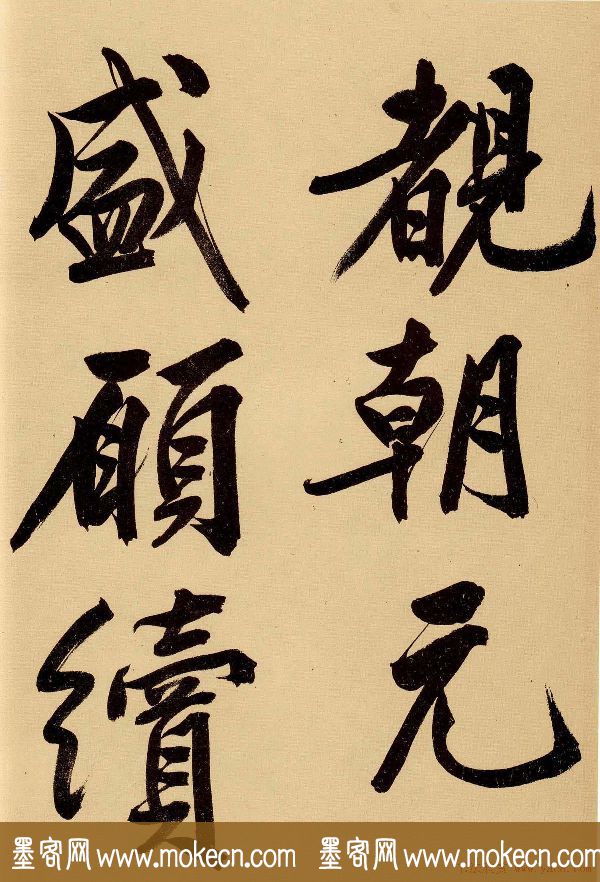 覩朝元
盛願續
墨客网 www.mokecn.com 墨客网 www.mokecn.com